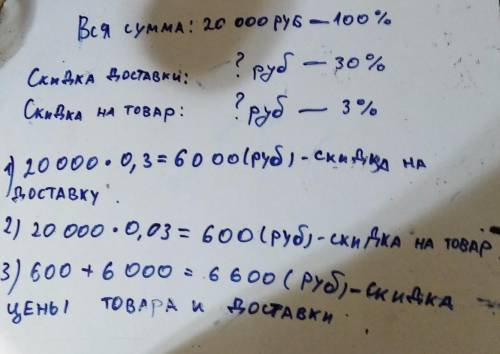 Вся сумма: 20 000 руб — 100%
Скидка доставки: ? руб — 30%
Скидка на товар: ? руб — 3%
1) 20 000 • 0,3 = 6000 (руб) - скидка на
доставку.
2) 20 000 • 0,03 = 600 (руб) - скидка на товар
3) 600 + 6 000 = 6 600 (руб) - скидка
цены товара и доставки.